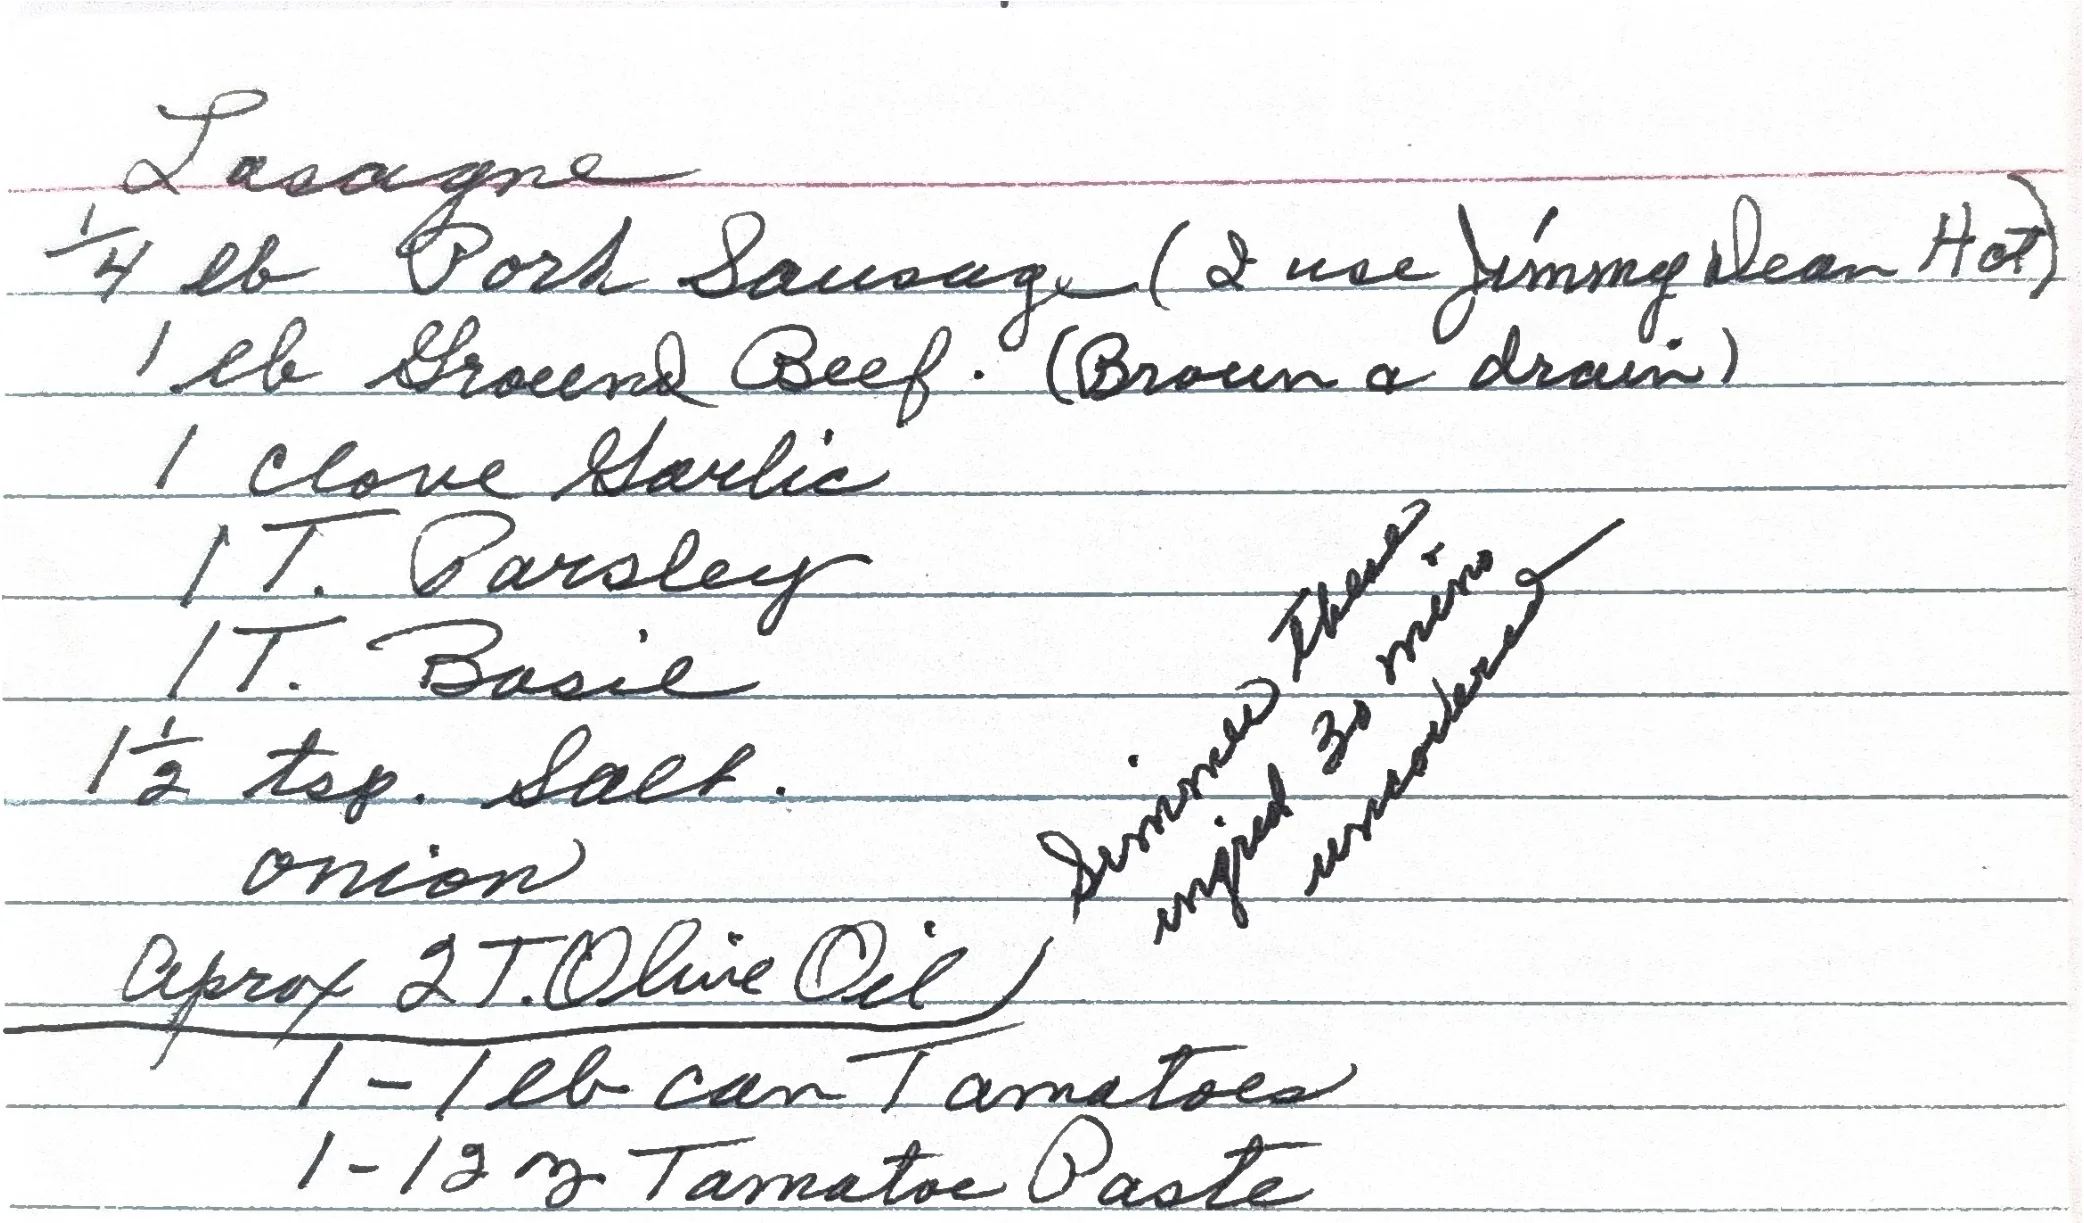 Lasagne
1/4 lb Pork Sausage (I use Jimmy Dean Hot)
1 lb Ground Beef. (Broun & drain)
1 clove Garlic
1 T. Parsley
1 T. Basil
1 1/2 tsp. Salt.
onion
Aprox 2 T. Olive Oil
Simmer these
ingred 30 mins
uncovered
1 - 1 lb can Tamatoes
1 - 12 oz Tamatoe Paste